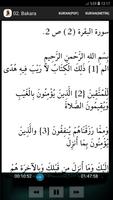 12:17
02. Bakara
KURAN(PDF)
KURAN(METİN)
سورة البقرة (2) ص 2.
بِسْمِ اللَّهِ الرَّحْمَنِ الرَّحِيمِ
الم {1} ذَلِكَ الْكِتَابُ لاَ رَيْبَ فِيهِ هُدًى
لِّلْمُتَّقِينَ {2} الَّذِينَ يُؤْمِنُونَ بِالْغَيْبِ
وَيُقِيمُونَ الصَّلاةَ وَمِمَّا رَزَقْنَاهُمْ يُنفِقُونَ
{3} والَّذِينَ يُؤْمِنُونَ بِمَا أُنزِلَ إِلَيْكَ وَمَا
00:10:52
01:47:58